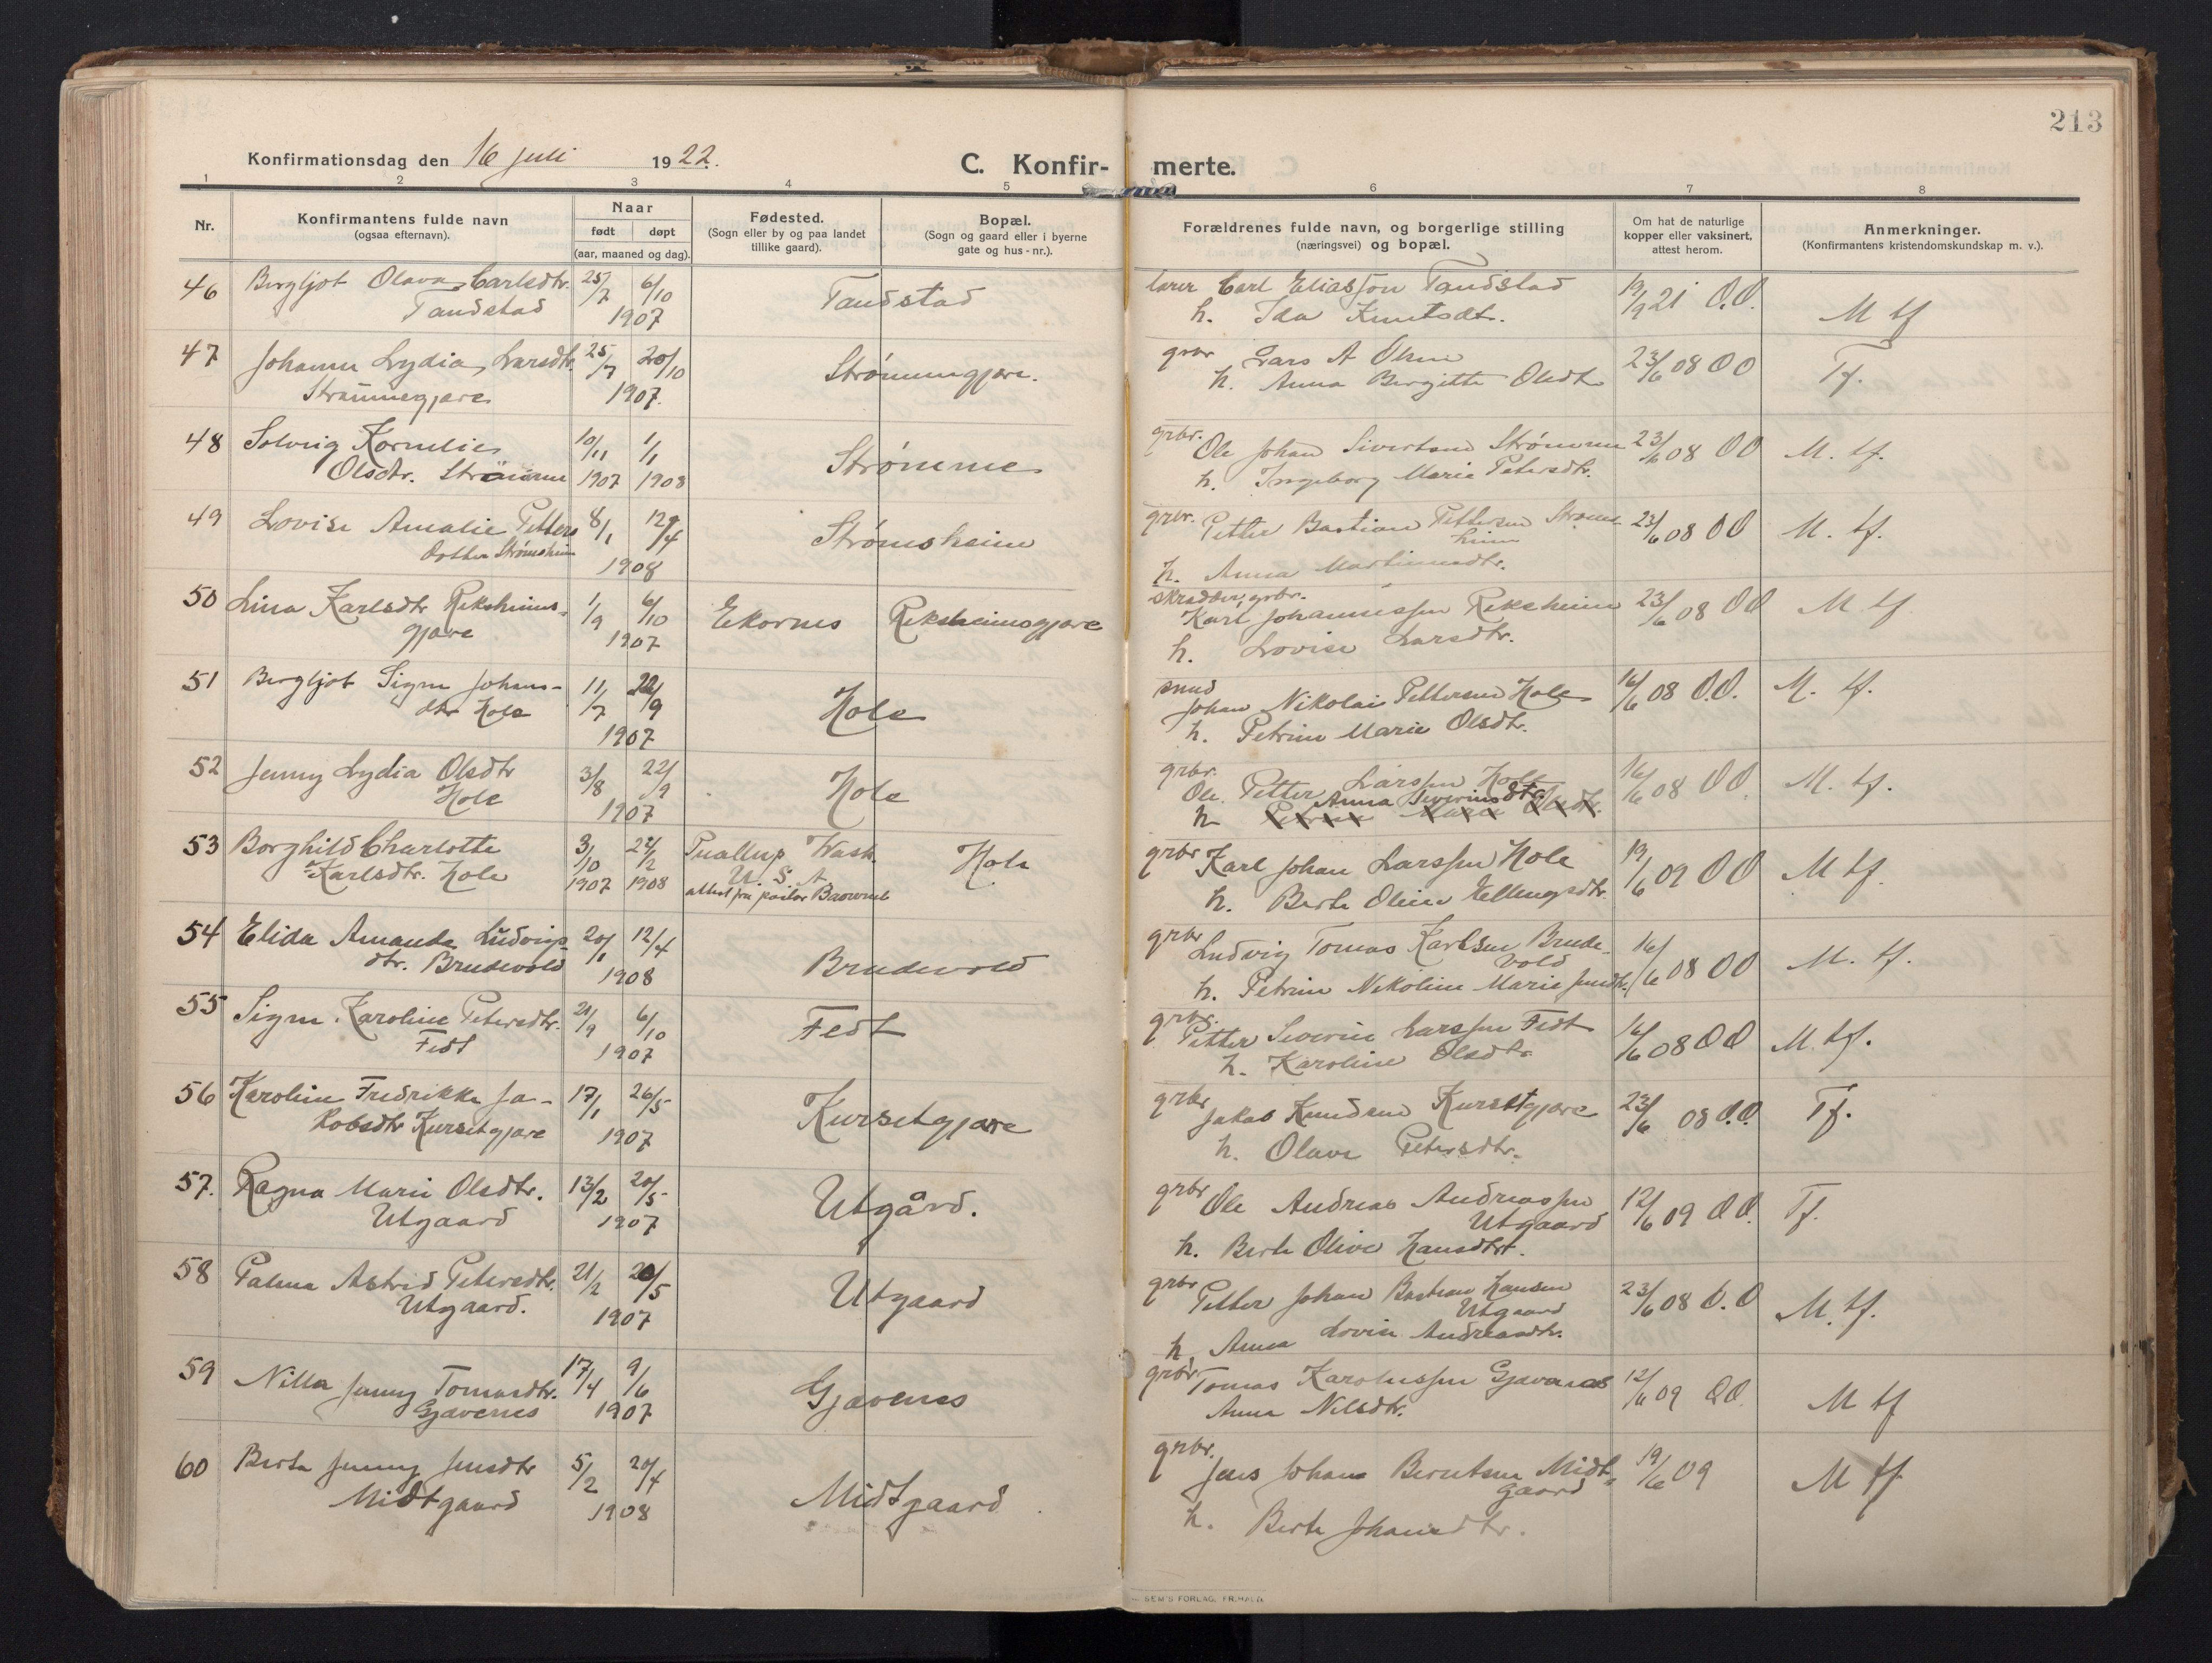 213
Konfirmationsdag den 16 juli 1922.
C. Konfir-merte.
1 2 3 4 5 6 7 8
Nr.
Konfirmantens fulde navn
(ogsaa efternavn).
Naar
født døpt
(aar, maaned og dag).
Fødested.
(Sogn eller by og paa landet
tillike gaard).
Bopæl.
(Sogn og gaard eller i byerne
gate og hus-nr.).
Forældrenes fulde navn, og borgerlige stilling
(næringsvei) og bopæl.
Om hat de naturlige
kopper eller vaksinert,
attest herom.
Anmerkninger.
(Konfirmantens kristendomskundskap m. v.).
46 Bergljot Olava Carlsdtr. 25/7 6/10 Tandstad lærer Carl Eliassøn Tandstad 19/9 21 O.O. M tf
Tandstad 1907 h. Ida Knutsdt.
47 Johanna Lydia Larsdtr. 25/7 20/10 Strømmegjære. grbr Lars A Olsen 23/6 08 OO Tf.
Strømmegjære 1907. h. Anna Bergitte Olsdt
48 Solveig Kornelie 10/11 1/1 Strømme grbr. Ole Johan Sivertsen Strømme 23/6 08 OO M. tf.
Olsdtr. Strømme 1907 1908 h. Ingeborg Marie Petersdtr.
49 Lovise Amalie Petters 8/1 12/4 Strømsheim grbr. Petter Bastian Pettersen Strøms- 23/6 08 OO M. tf.
dotter Strømsheim 1908 heim
h. Anna Martinusdtr.
50 Lina Karlsdtr Reksheims- 1/9 6/10 Ekornes Reksheimsgjære skrædder, grbr. Karl Johannessen Reksheim 23/6 08 OO M tf
gjære 1907 h. Lovise Larsdtr.
51 Bergljot Signe Johans- 11/7 22/9 Hole smed Johan Nikolai Pettersen Hole 16/6 08 O.O. M. tf.
dtr Hole 1907 h. Petrine Marie Olsdt.
52 Jenny Lydia Olsdtr 3/8 22/9 Hole grbr. Ole Petter Larssen Hole 16/6 08 OO M. tf.
Hole 1907 Anna Severinsdtr
h Petrine Marie Olsdtr.
53 Borghild Charlotte 3/10 24/2 Puallup Wash. Hole grbr Karl Johan Larssen Hole 19/6 09 OO M tf.
Karlsdtr. Hole 1907 1908 U. S. A h. Berte Oline Hellingsdtr.
attest fra pastor
54 Elida Amanda Ludvigs 20/1 12/4 Brudevold grbr Ludvig Tomas Karlsen Brude- 16/6 08 OO M. tf.
dtr. Brudevold 1908 vold
h. Petrine Nikoline Marie Jensdtr.
55 Signe Karoline Petersdtr. 21/9 6/10 Fedt grbr. Petter Severin Larssen Fedt 16/6 08 OO M. tf.
Fedt 1907 h. Karoline Olsdtr
56 Karoline Fredrikke Ja- 17/1 26/5 Kursetgjære grbr Jakob Knudsen Kursetgjære 23/6 08 O.O. Tf.
kobsdtr Kursetgjære 1907 h. Olave Petersdtr.
57. Ragna Marie Olsdtr. 13/2 20/5 Utgård. grbr Ole Andreas Andreassen 12/6 09 OO. Tf.
Utgaard 1907 Utgaard
h. Berte Olive Hansdtr.
58 Palma Astrid Petersdtr. 21/2 20/5 Utgaard grbr Petter Johan Bastian Hansen 23/6 08 O.O M. tf.
Utgaard. 1907 Utgaard
h Anna Lovise Andreasdtr.
59 Nilla Jenny Tomasdtr. 17/4 9/6 Gjævenes grbr Tomas Karolussen Gjævenes 12/6 09 OO. M tf
Gjævenes 1907 Anna Nilsdtr.
60 Berte Jenny Jensdtr 5/2 20/4 Midtgaard grbr. Jens Johan Berntsen Midt- 19/6 09 M tf
Midtgaard 1908 gaard
h. Berte Johansdtr.
SEM'S FORLAG, FR.HALD.